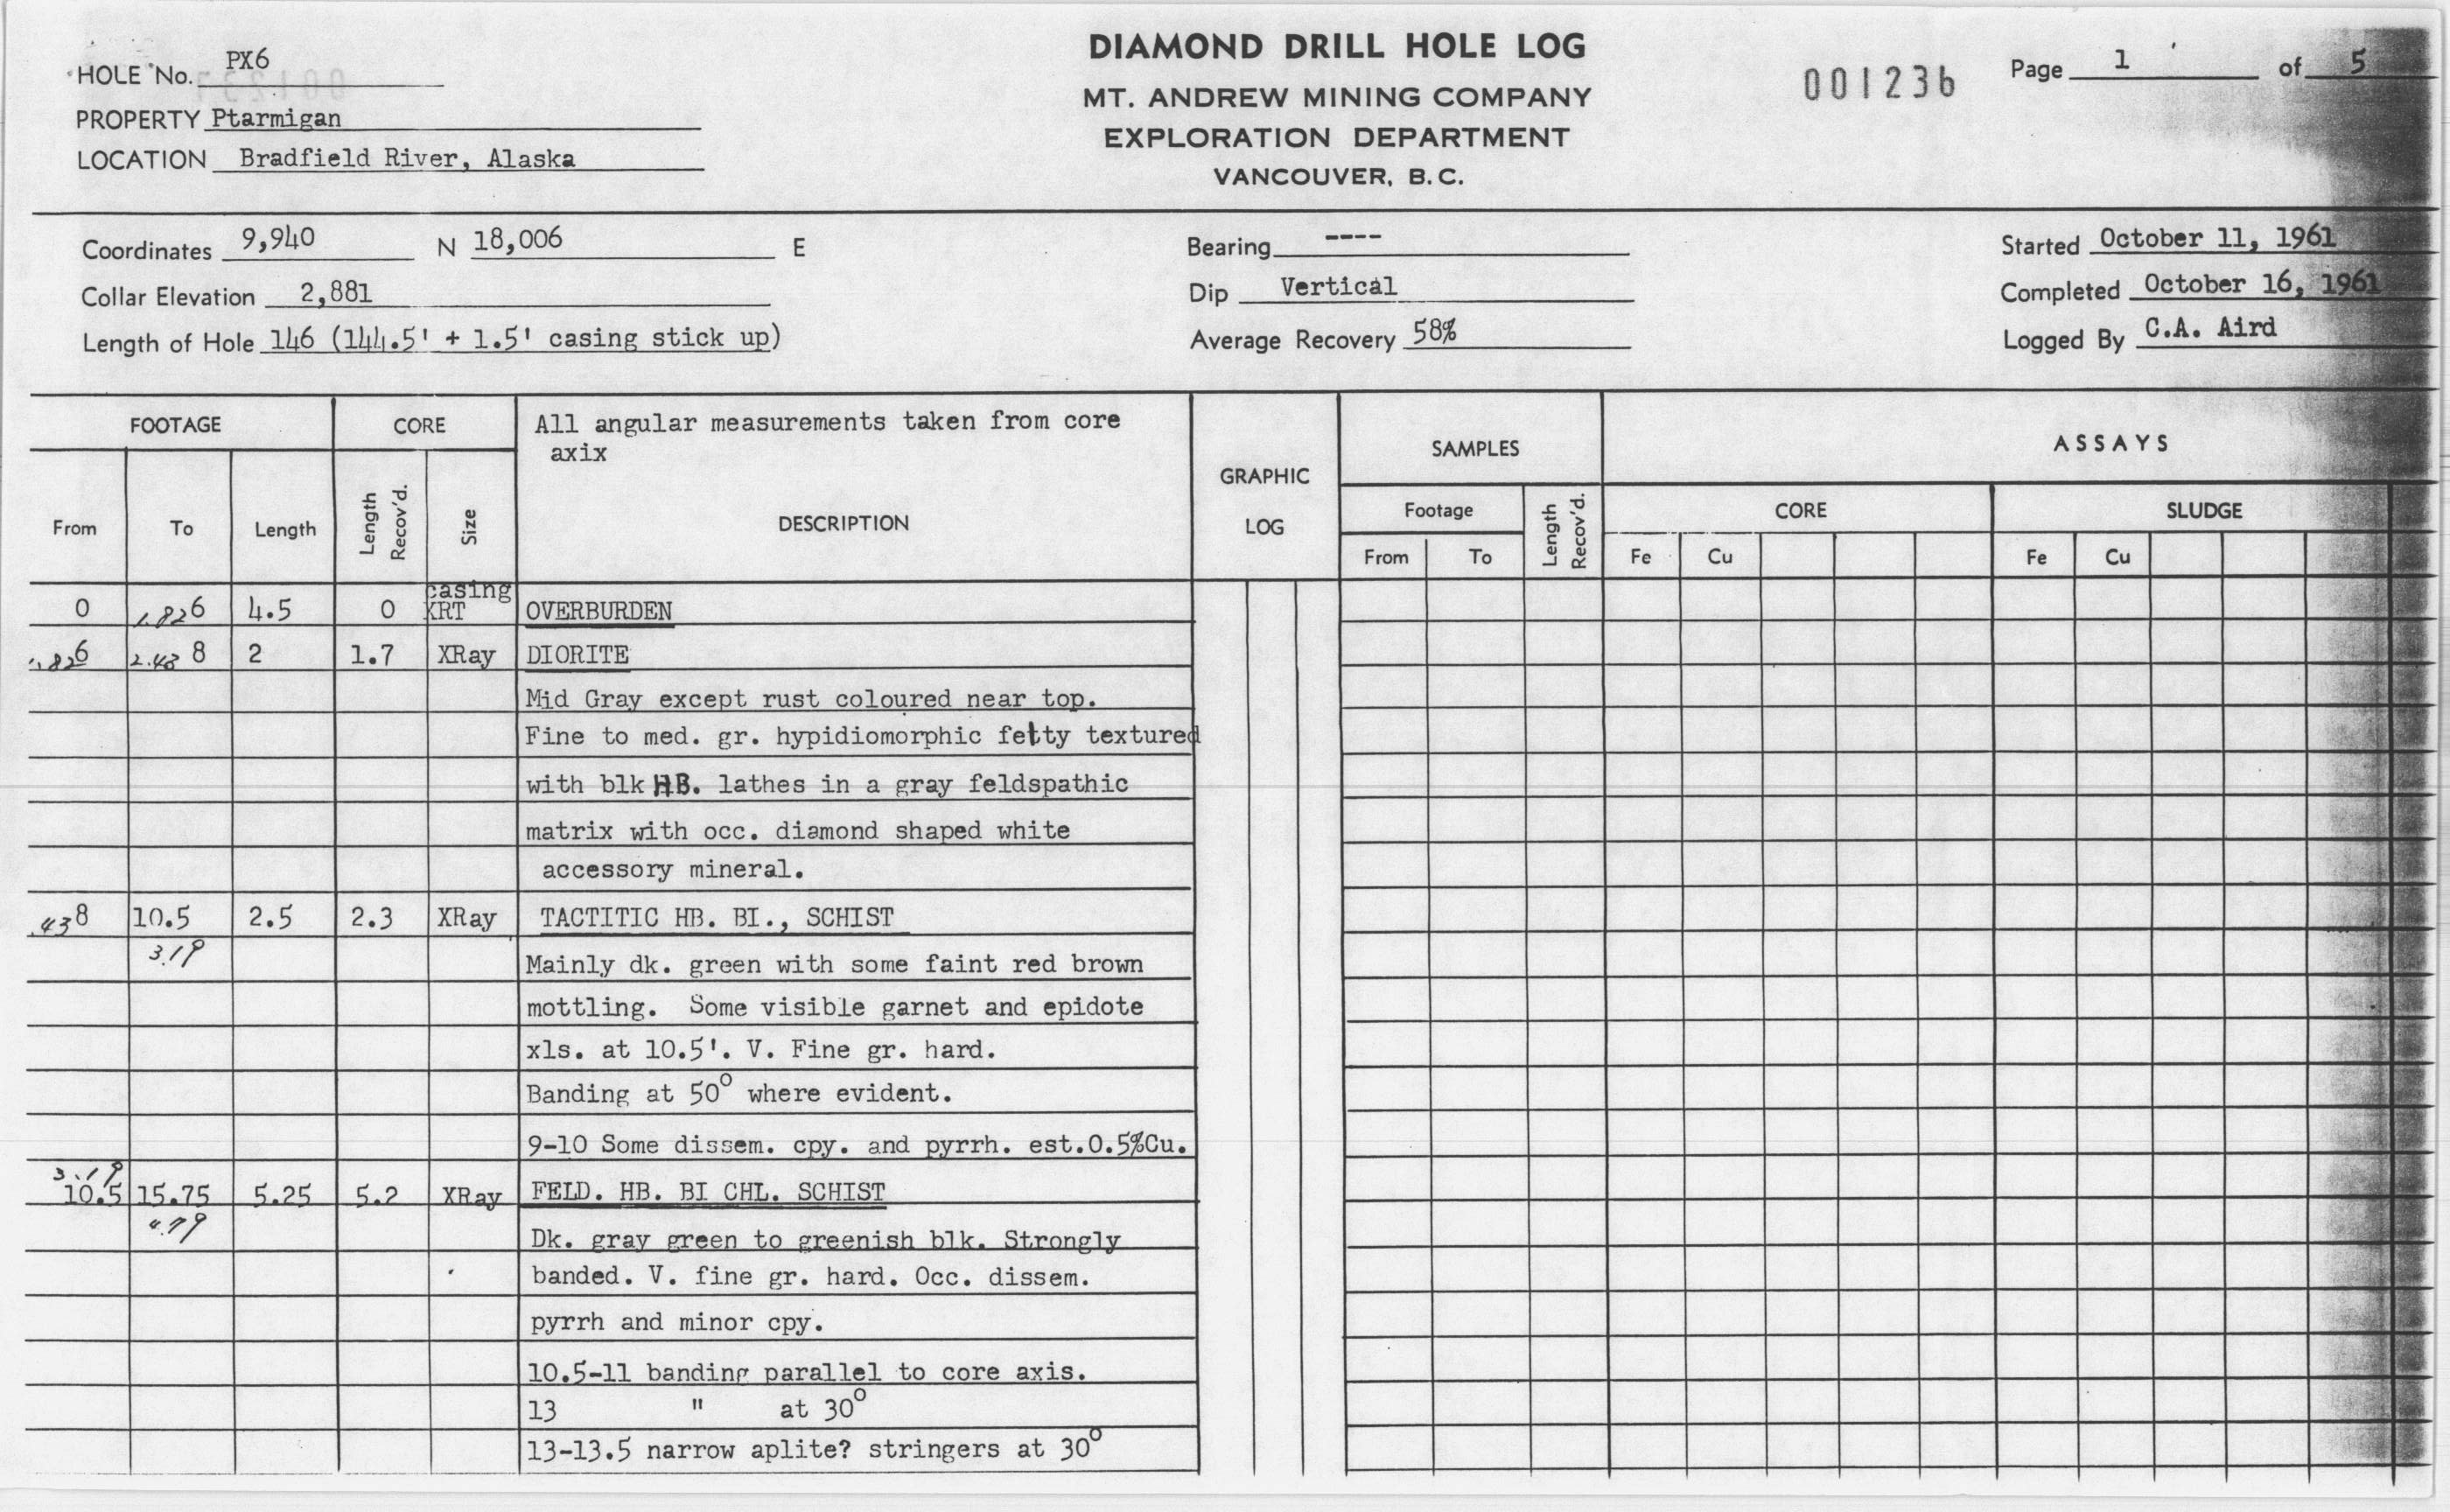 DIAMOND DRILL HOLE LOG
MT. ANDREW MINING COMPANY
EXPLORATION DEPARTMENT
VANCOUVER, B.C.
001236
Page 1 of 5
HOLE No. PX6
PROPERTY Ptarmigan
LOCATION Bradfield River, Alaska
Coordinates 9,940 N 18,006 E
Collar Elevation 2,881
Length of Hole 146 (144.5' + 1.5' casing stick up)
Bearing ----
Dip Vertical
Average Recovery 58%
Started October 11, 1961
Completed October 16, 1961
Logged By C.A. Aird
FOOTAGE CORE All angular measurements taken from core
axix
From To Length Length Recov'd. Size DESCRIPTION
GRAPHIC
LOG
SAMPLES
Footage Length Recov'd.
From To
ASSAYS
CORE SLUDGE
Fe Cu Fe Cu
casing
0 1.82 6 4.5 0 XRT OVERBURDEN
.82 6 2.43 8 2 1.7 XRay DIORITE
Mid Gray except rust coloured near top.
Fine to med. gr. hypidiomorphic fetty textured
with blk HB. lathes in a gray feldspathic
matrix with occ. diamond shaped white
accessory mineral.
.43 8 10.5 2.5 2.3 XRay TACTITIC HB. BI., SCHIST
3.19
Mainly dk. green with some faint red brown
mottling. Some visible garnet and epidote
xls. at 10.5'. V. Fine gr. hard.
Banding at 50° where evident.
9-10 Some dissem. cpy. and pyrrh. est.0.5%Cu.
3.19
10.5 15.75 5.25 5.2 XRay FELD. HB. BI CHL. SCHIST
4.79
Dk. gray green to greenish blk. Strongly
banded. V. fine gr. hard. Occ. dissem.
pyrrh and minor cpy.
10.5-11 banding parallel to core axis.
13 " at 30°
13-13.5 narrow aplite? stringers at 30°